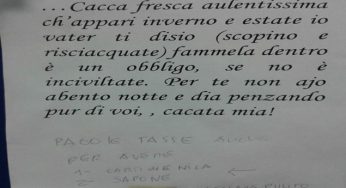 ...Cacca fresca aulentissima
ch'appari inverno e estate io
vater ti disio (scopino e
risciacquate) fammela dentro
è un obbligo, se no è
inciviltate. Per te non ajo
abento notte e dia penzando
pur di voi, , cacata mia!
PAGO LE TASSE ANCHE
PER AVERE
1- CARTA IGIENICA
2- SAPONE